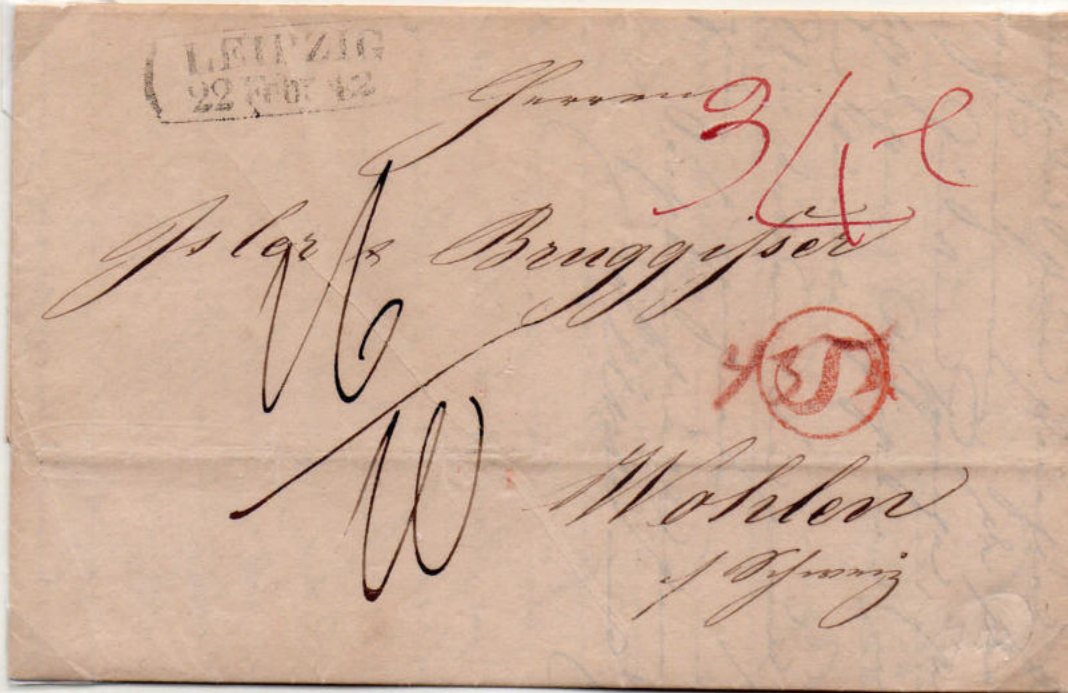 LEIPZIG
22 Febr 42
Herren
Isler & Bruggisser
16
10
Wohlen
Schweiz